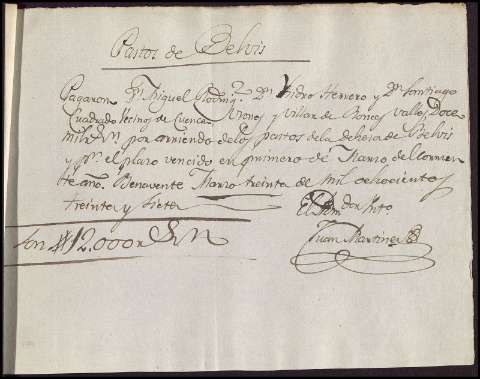 Pastos de Belvis
Pagaron Dn. Miguel Dn. Ysidro Herrero y Dn. Santiago
Cuadrado Vecinos de Cuenca y Villar de Roncesvalles Doce
mil Rs. Vn. por arriendo de los pastos de la dehesa de Belvis
y pr. el plazo vencido en primero de Marzo del corrien-
te año. Benavente Marzo treinta de mil ochocientos
treinta y siete
El Admdor. Into.
Son 12.000 Rs. Vn.
Juan Martinez